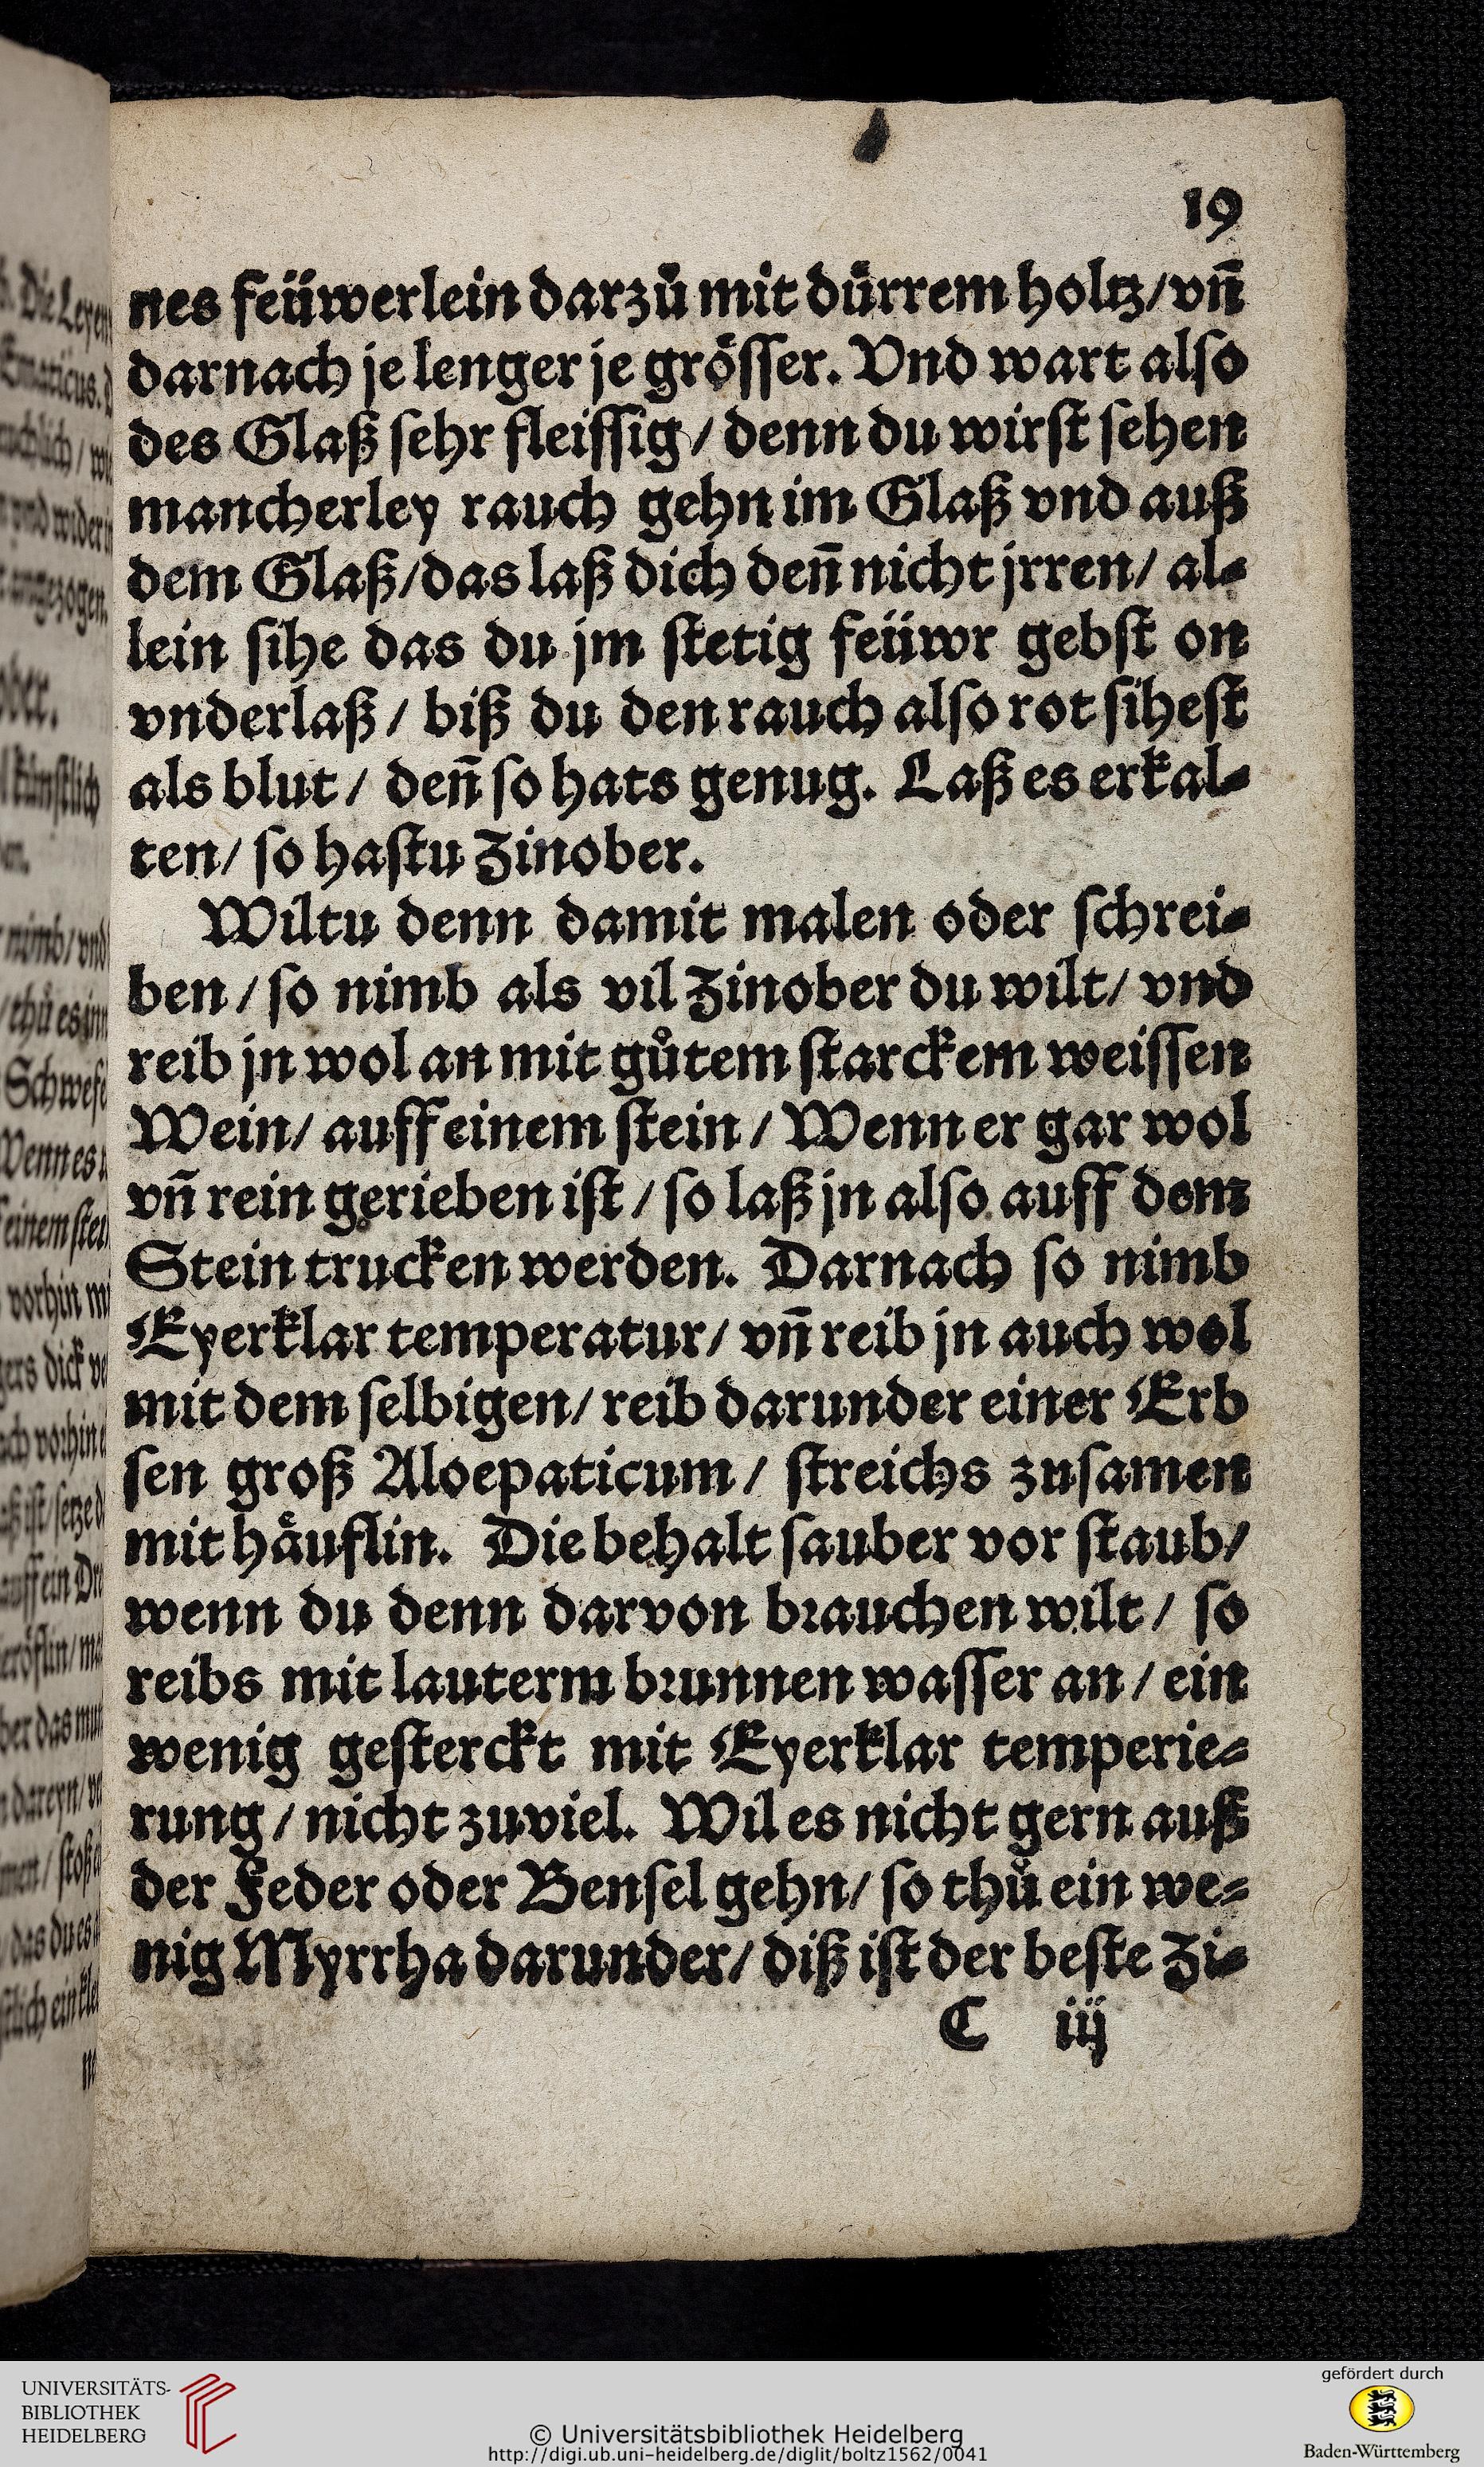 19
nes feüwerlein darzů mit dürrem holtz/ vn̄
darnach je lenger je grösser. Vnd wart also
des Glaß sehr fleissig/ denn du wirst sehen
mancherley rauch gehn im Glaß vnd auß
dem Glaß/ das laß dich den̄ nicht jrren/ al⸗
lein sihe das du jm stetig feüwr gebst on
vnderlaß/ biß du den rauch also rot sihest
als blut/ den̄ so hats genug. Laß es erkal⸗
ten/ so hastu Zinober.
Wiltu denn damit malen oder schrei⸗
ben/ so nimb als vil Zinober du wilt/ vnd
reib jn wol an mit gůtem starckem weissen
Wein/ auff einem stein/ Wenn er gar wol
vn̄ rein gerieben ist/ so laß jn also auff dem
Stein trucken werden. Darnach so nimb
Eyerklar temperatur/ vn̄ reib jn auch wol
mit dem selbigen/ reib darunder einer Erb
sen groß Aloepaticum/ streichs zusamen
mit häuflin. Die behalt sauber vor staub/
wenn du denn darvon brauchen wilt/ so
reibs mit lauterm brunnen wasser an/ ein
wenig gesterckt mit Eyerklar temperie⸗
rung/ nicht zuviel. Wil es nicht gern auß
der Feder oder Bensel gehn/ so thů ein we⸗
nig Myrrha darunder/ diß ist der beste Zi⸗
C iij
UNIVERSITÄTS-
BIBLIOTHEK
HEIDELBERG
© Universitätsbibliothek Heidelberg
http://digi.ub.uni-heidelberg.de/diglit/boltz1562/0041
gefördert durch
Baden-Württemberg